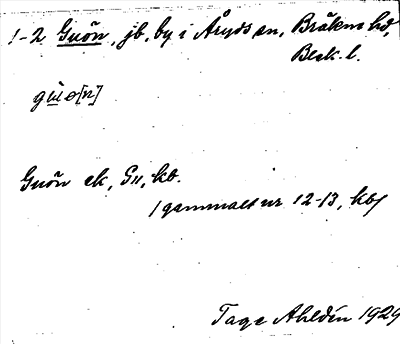 1-2 Guön, jb, by i Åryds sn, Bräkne hd,
Blek. l.
gu̇̀ø[n]
Guön ek, Gu, kb.
/ gammalt nr 12-13, kb/
Tage Ahldén 1929